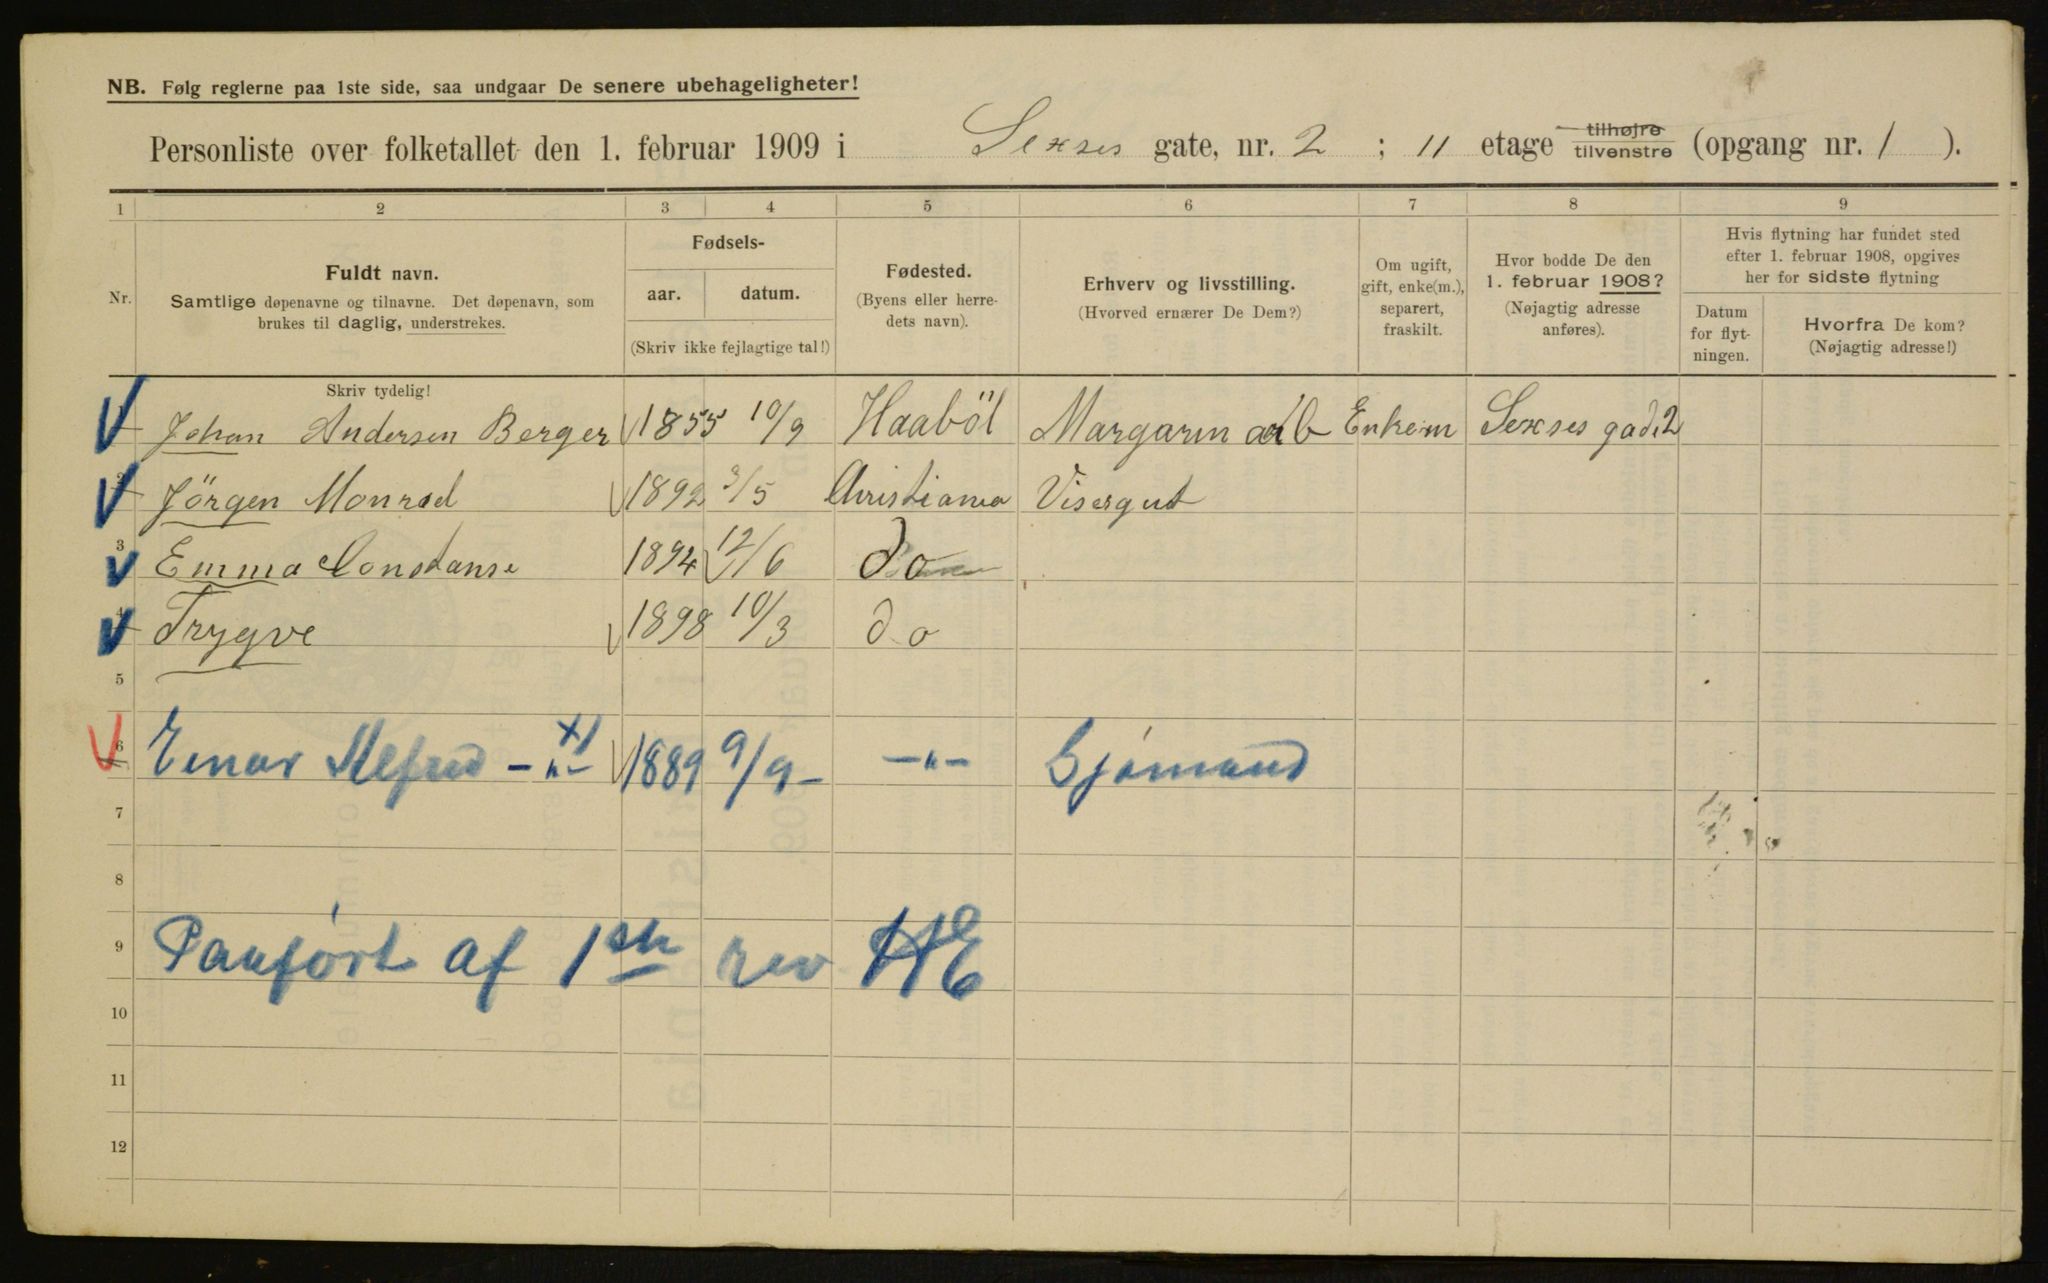 NB. Følg reglerne paa 1ste side, saa undgaar De senere ubehageligheter!
Personliste over folketallet den 1. februar 1909 i Sexses gate, nr. 2 ; 11 etage tilhøjre tilvenstre (opgang nr. 1 ).
1 2 3 4 5 6 7 8 9
Nr.
Fuldt navn.
Samtlige døpenavne og tilnavne. Det døpenavn, som
brukes til daglig, understrekes.
Fødsels-
aar. datum.
(Skriv ikke fejlagtige tal!)
Fødested.
(Byens eller herre-
dets navn).
Erhverv og livsstilling.
(Hvorved ernærer De Dem?)
Om ugift,
gift, enke(m.),
separert,
fraskilt.
Hvor bodde De den
1. februar 1908?
(Nøjagtig adresse
anføres).
Hvis flytning har fundet sted
efter 1. februar 1908, opgives
her for sidste flytning
Datum
for flyt-
ningen.
Hvorfra De kom?
(Nøjagtig adresse!)
Skriv tydelig!
Johan Andersen Berger 1855 10/9 Haaböl Margarin arb Enkem Sexses gade 2
2 Jörgen Monrad 1892 3/5 Christiania Visergut
3 Emma Constanse 1894 12/6 do
4 Trygve 1898 10/3 do
5
6 Einar Alfred -"- x) 1889 9/9- -"- Sjömand
7
8
9 Paaført af 1ste rev HE
10
11
12